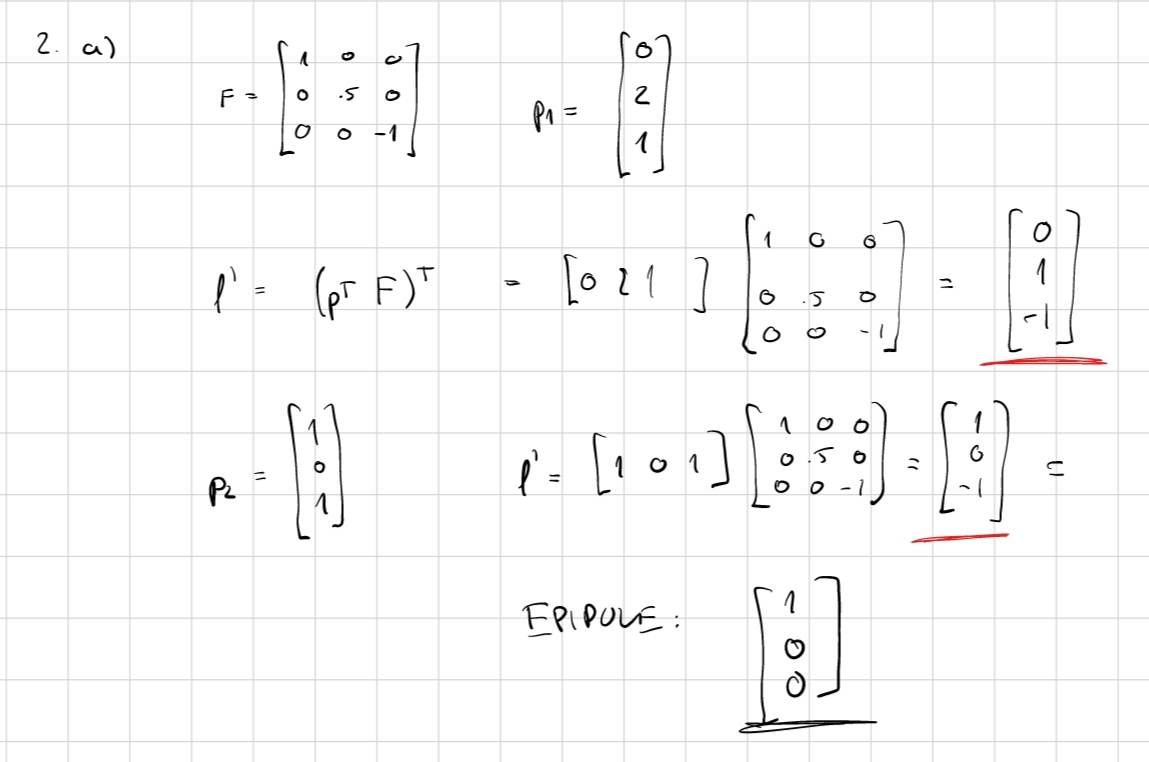 2. a)
F = [1 0 0; 0 .5 0; 0 0 -1]   p1 = [0; 2; 1]
l' = (pᵀ F)ᵀ = [0 2 1] [1 0 0; 0 .5 0; 0 0 -1] = [0; 1; -1]
p2 = [1; 0; 1]   l' = [1 0 1] [1 0 0; 0 .5 0; 0 0 -1] = [1; 0; -1] =
EPIPOLE: [1; 0; 0]